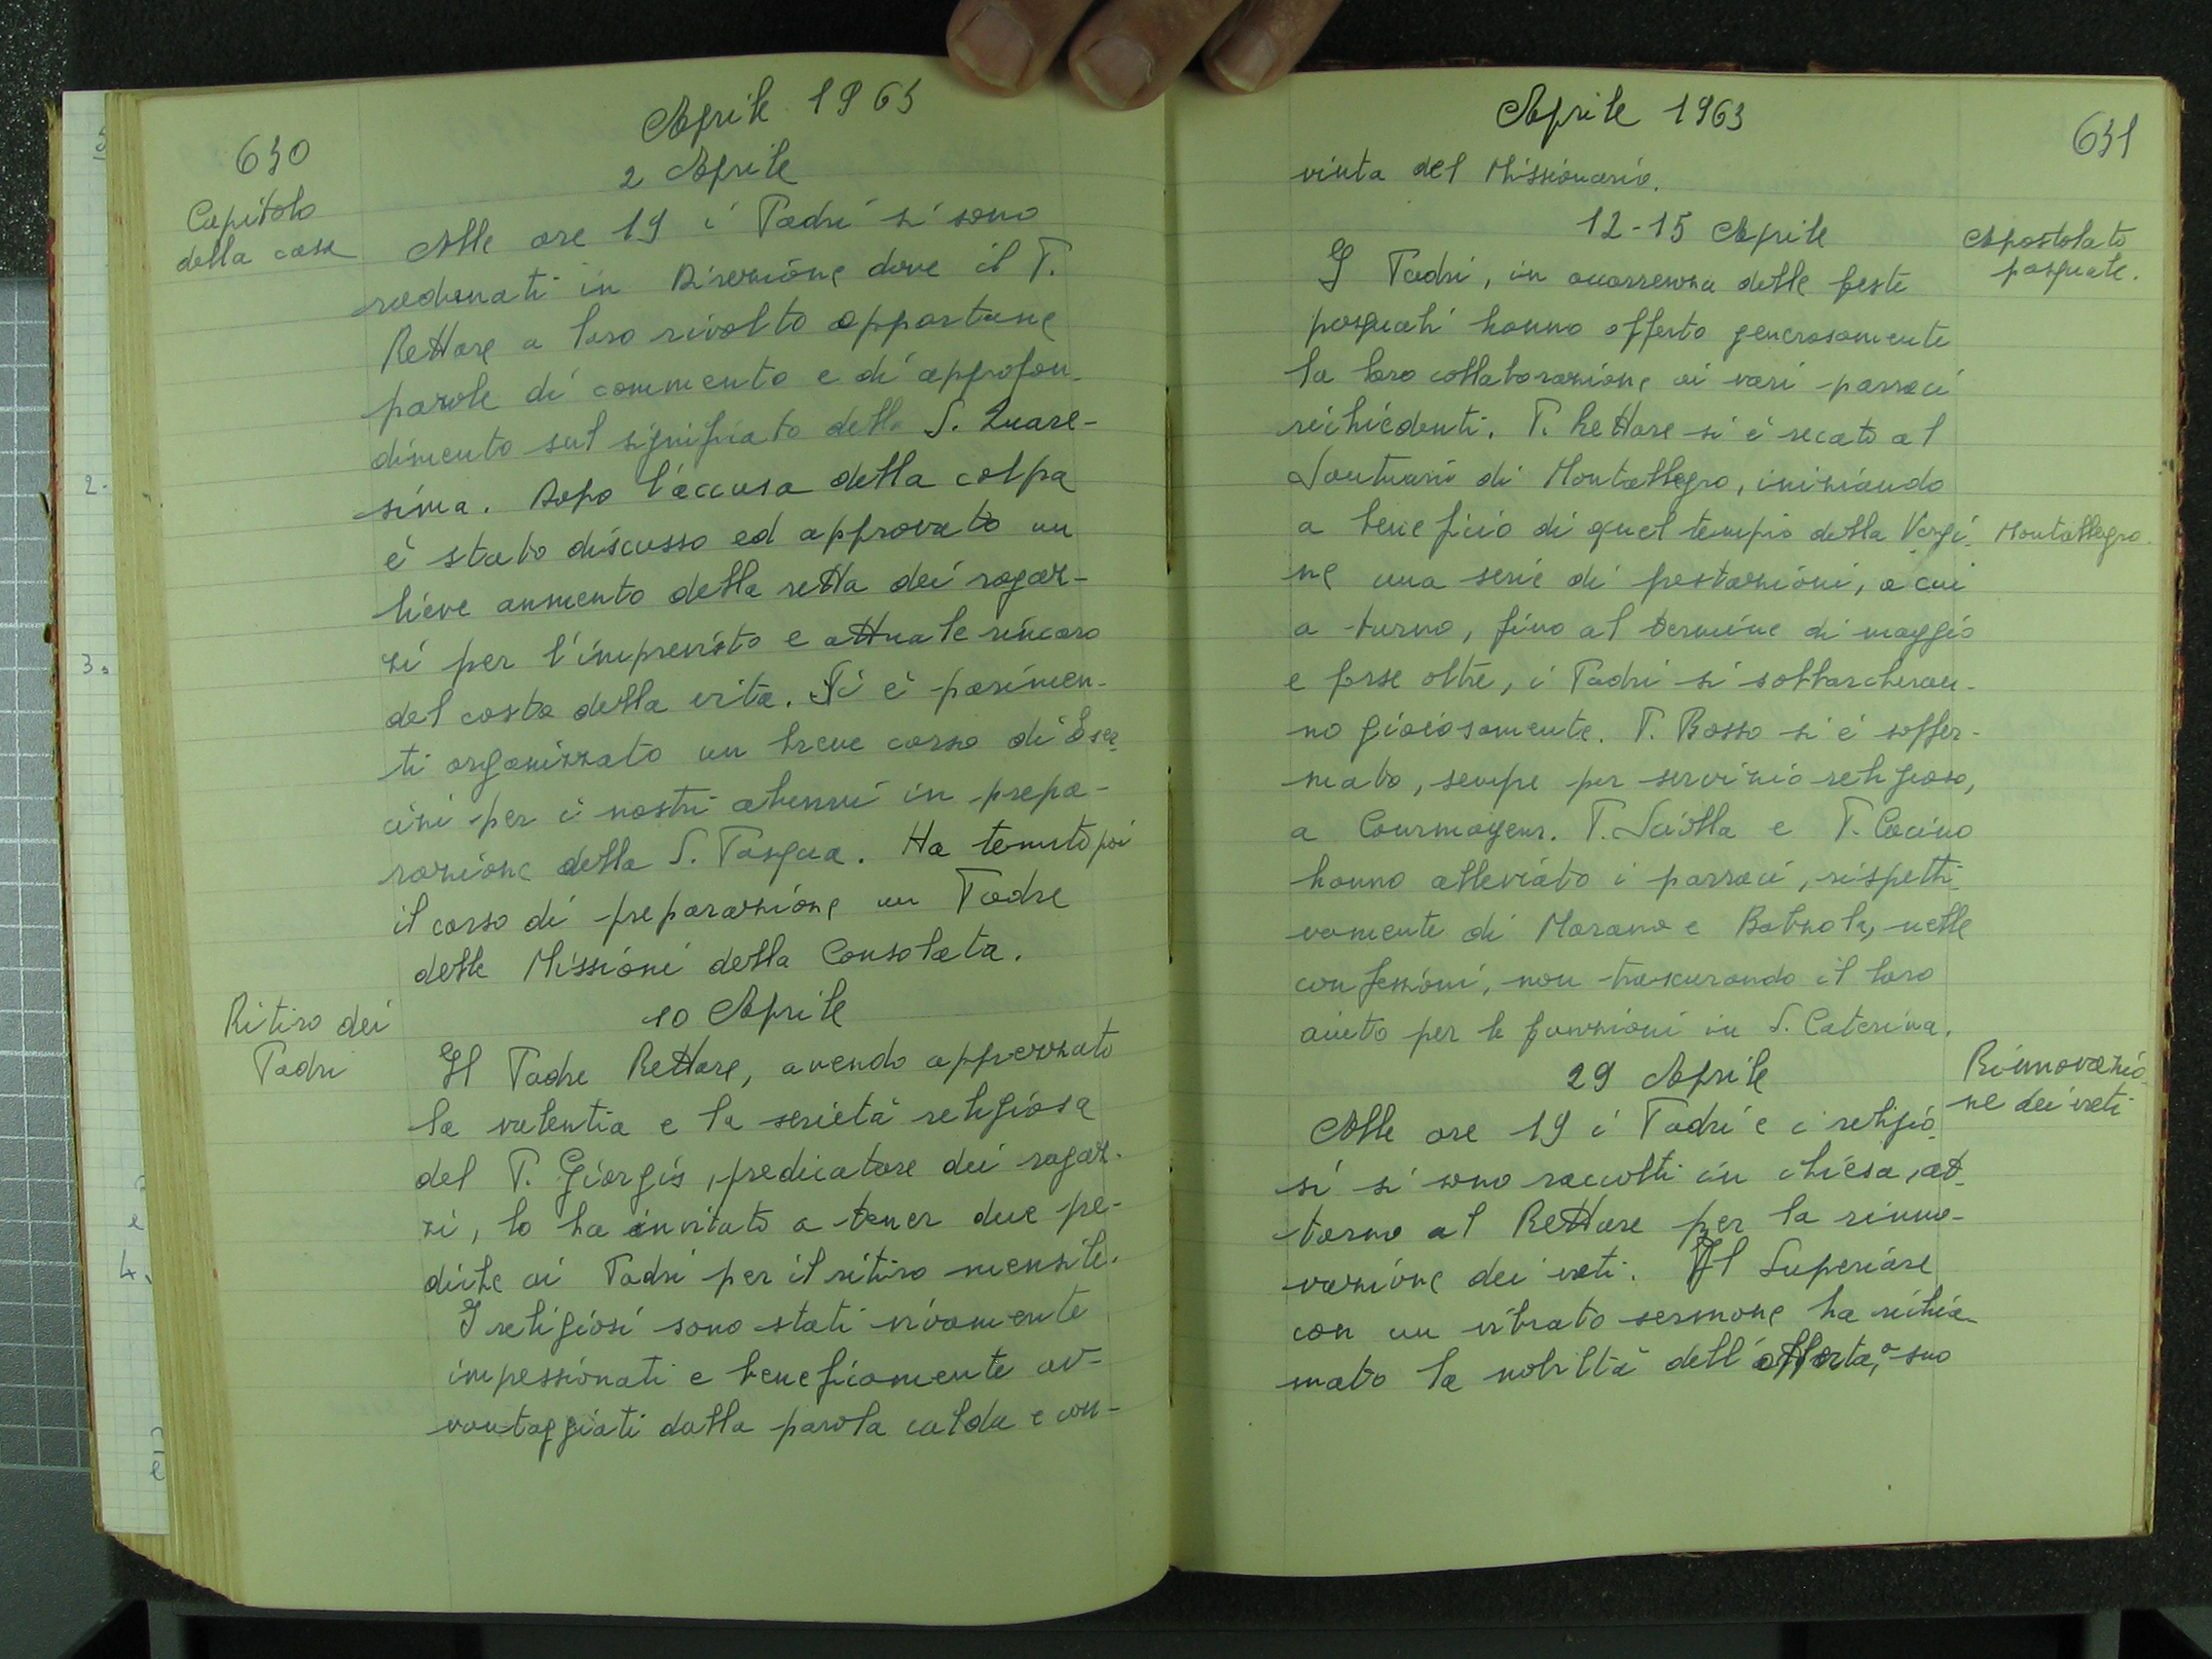 630
Aprile 1963
2 Aprile
Capitolo
della casa
Alle ore 19 i Padri si sono
radunati in Direzione dove il P.
Rettore a loro rivolto opportune
parole di commento e di approfon-
dimento sul significato della S. Quare-
sima. Dopo l'accusa della colpa
è stato discusso ed approvato un
lieve aumento della retta dei ragaz-
zi per l'imprevisto e attuale rincaro
del costo della vita. Si è parimen-
ti organizzato un breve corso di Eser-
cizi per i nostri alunni in prepa-
razione della S. Pasqua. Ha tenuto poi
il corso di preparazione un Padre
delle Missioni della Consolata.
10 Aprile
Ritiro dei
Padri
Il Padre Rettore, avendo apprezzato
la valentia e la serietà religiosa
del P. Giorgis, predicatore dei ragaz-
zi, lo ha invitato a tener due pre-
diche ai Padri per il ritiro mensile.
I religiosi sono stati vivamente
impessionati e beneficamente av-
vantaggiati dalla parola calda e con-
Aprile 1963
631
vinta del Missionario.
12-15 Aprile
Apostolato
pasquale.
I Padri, in occorrenza delle feste
pasquali hanno offerto generosamente
la loro collaborazione ai vari parroci
richiedenti. P. Rettore si è recato al
Santuario di Montallegro, iniziando
a beneficio di quel tempio della Vergi-
Montallegro.
ne una serie di prestazioni, a cui
a turno, fino al termine di maggio
e forse oltre, i Padri si sobbarcheran-
no gioiosamente. P. Bosso si è soffer-
mato, sempre per servizio religioso,
a Courmayeur. P. Sciolla e P. Cocino
hanno alleviato i parroci, rispetti-
vamente di Morano e Balzola, nelle
confessioni, non trascurando il loro
aiuto per le funzioni in S. Caterina.
29 Aprile
Rinnovazio-
ne dei voti
Alle ore 19 i Padri e i religio-
si si sono raccolti in chiesa, at-
torno al Rettore per la rinno-
vazione dei voti. Il Superiore
con un vibrato sermone ha richia-
mato la nobiltà dell'offerta, a suo
2.
3.
4.